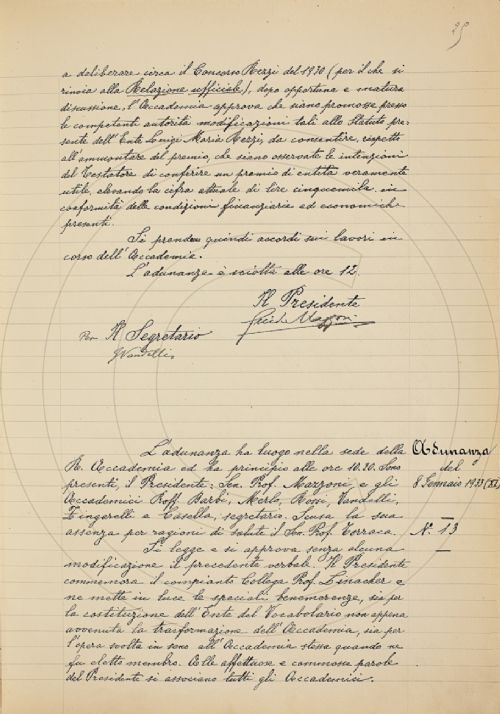 29
a deliberare circa il Concorso Rezzi del 1930 (per il che si
rinvia alla Relazione ufficiale), dopo opportuna e matura
discussione, l'Accademia approva che siano promosse presso
le competenti autorità modificazioni tali allo Statuto pre-
sente dell'Ente Luigi Maria Rezzi, da consentire, rispetto
all'ammontare del premio, che siano osservate le intenzioni
del Testatore di conferire un premio di entità veramente
utile, elevando la cifra attuale di lire cinquemila, in
conformità delle condizioni finanziarie ed economiche
presenti.
Si prendono quindi accordi sui lavori in
corso dell'Accademia.
L'adunanza è sciolta alle ore 12.
Il Presidente
Mazzoni
Per Il Segretario
GVandelli
L'adunanza ha luogo nella sede della
R. Accademia ed ha principio alle ore 10.30. Sono
presenti, il Presidente, Sen. Prof. Mazzoni, e gli
Accademici Proff. Barbi, Merlo, Rossi, Vandelli,
Zingarelli e Casella, segretario. Scusa la sua
assenza per ragioni di salute il Sen. Prof. Torraca.
Si legge e si approva senza alcuna
modificazione il precedente verbale. Il Presidente
commemora il compianto Collega Prof. Linacher e
ne mette in luce le speciali benemerenze, sia per
la costituzione dell'Ente del Vocabolario non appena
avvenuta la trasformazione dell'Accademia, sia per
l'opera svolta in seno all'Accademia stessa quando ne
fu eletto membro. Alle affettuose e commosse parole
del Presidente si associano tutti gli Accademici.
Adunanza
del
8 Gennaio 1933 (XI)
N. 13